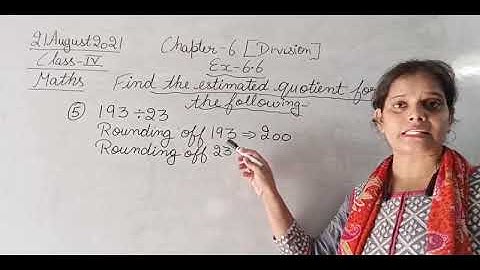 21 August 2021
Class-IV
Maths
Chapter-6 [Division]
Ex-6.6
Find the estimated quotient for
the following-
⑤ 193÷23
Rounding off 193 ⇒ 200
Rounding off 23